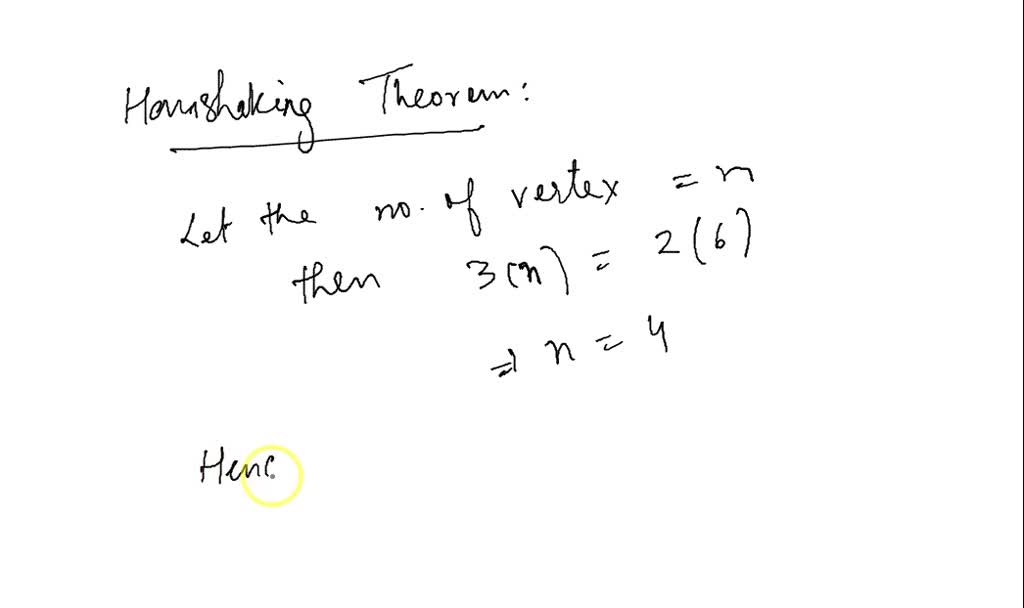 Hanshaking Theorem:
Let the no. of vertex = n
then 3(n) = 2(6)
⇒ n = 4
Henc